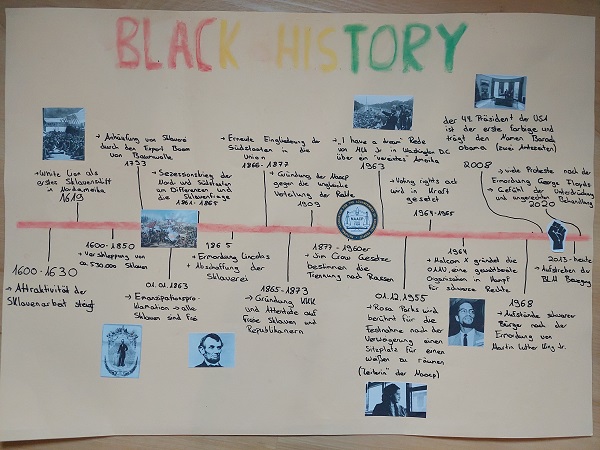 BLACK HISTORY
→ White Lion als
erstes Sklavenschiff
Nordamerika
1619
→ Anhäufung von Sklaven
durch den Export Boom
von Baumwolle
1793
→ Sezessionskrieg der
Nord- und Südstaaten
an Differenzen und
die Sklavenfrage
1861-1865
→ Erneute Eingliederung der
Südstaaten in die
Union
1866 - 1877
→ Gründung der Naacp
gegen die ungleiche
Verteilung der Rechte
1909
→ "I have a dream" Rede
von MLK Jr. in Washington D.C
über ein "vereintes" Amerika
1963
NAACP
→ Voting rights act
wird in Kraft
gesetzt
1964-1965
der 44. Präsident der USA
ist der erste farbige und
trägt den Namen Barack
Obama (zwei Amtszeiten)
2008
→ viele Proteste nach der
Ermordung George Floyds
→ Gefühl der Unterdrückung
und ungerechten Behandlung
2020
1600-1630
→ Attraktivität der
Sklavenarbeit steigt
1600-1850
→ Verschleppung von
ca. 530.000 Sklaven
01.01.1863
→ Emanzipationspro-
klamation → alle
Sklaven sind frei
1865
→ Ermordung Lincolns
Abschaffung der
Sklaverei
1865-1873
→ Gründung KKK
und Attentate auf
freie Sklaven und
Republikanern
1877 - 1960er
→ Jim Crow Gesetze
bestimmen die
Trennung nach Rassen
01.12.1955
→ Rosa Parks wird
berühmt für die
Festnahme nach der
Verweigerung einen
Sitzplatz für einen
weißen zu räumen
("Leiterin" der Naacp)
1964
→ Malcom X gründet die
OAAU, eine gewaltbereite
Organisation im Kampf
für schwarze Rechte
1968
→ Aufstände schwarzer
Bürger nach der
Ermordung von
Martin Luther King Jr.
2013 - heute
→ Aufstreben der
BLM Bewegung